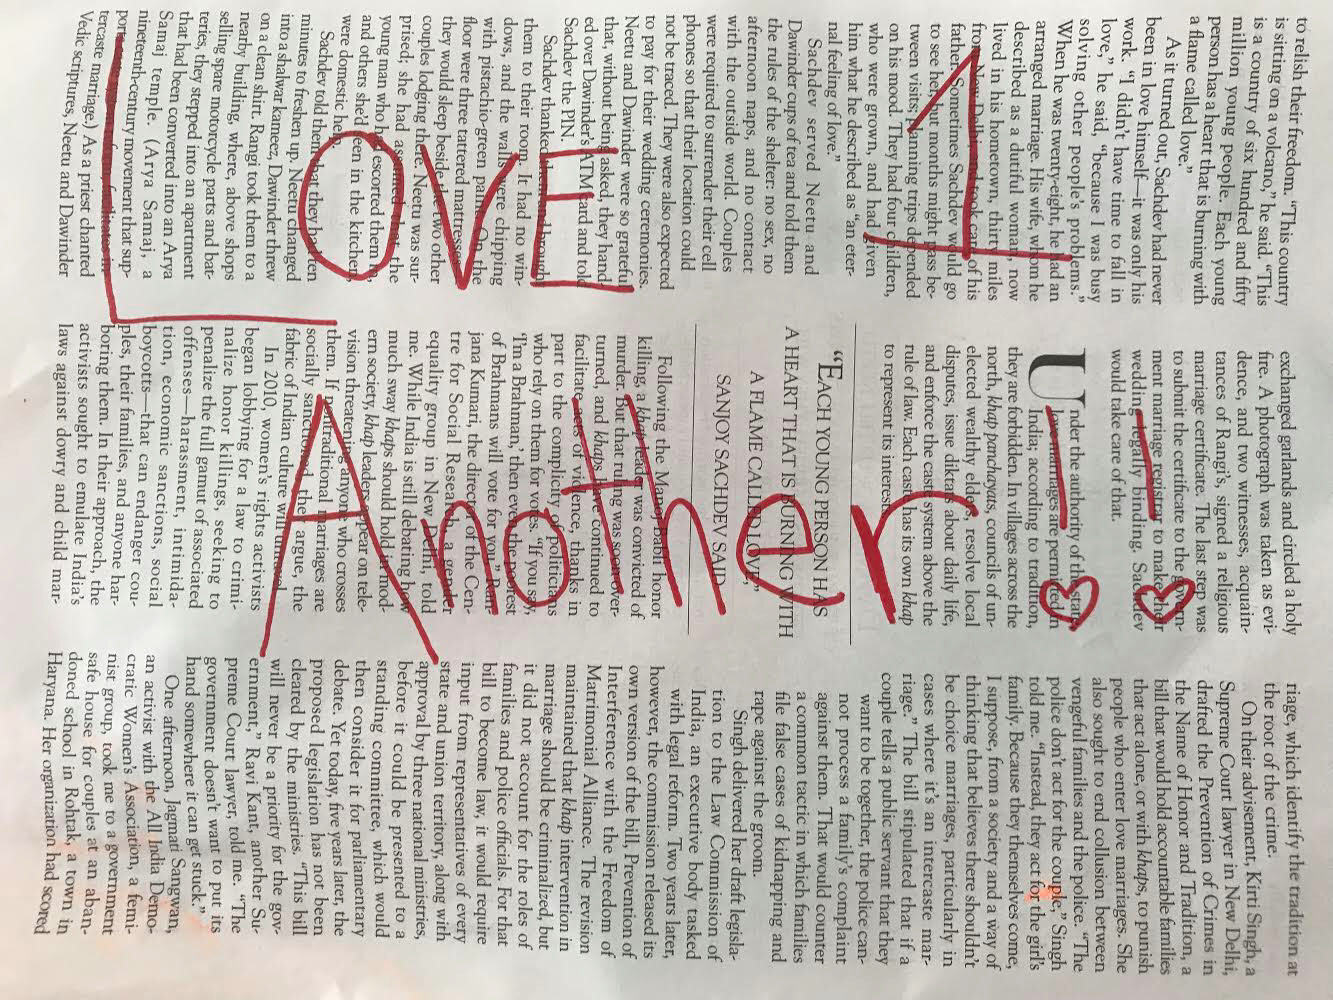 to relish their freedom. "This country
is sitting on a volcano," he said. "This
is a country of six hundred and fifty
million young people. Each young
person has a heart that is burning with
a flame called love."
As it turned out, Sachdev had never
been in love himself—it was only his
work. "I didn't have time to fall in
love," he said, "because I was busy
solving other people's problems."
When he was twenty-eight, he had an
arranged marriage. His wife, whom he
described as a dutiful woman, now
lived in his hometown, thirty miles
from New Delhi, and took care of his
father. Sometimes Sachdev would go
to see her, but months might pass be-
tween visits; planning trips depended
on his mood. They had four children,
who were grown, and had given
him what he described as "an eter-
nal feeling of love."
Sachdev served Neetu and
Dawinder cups of tea and told them
the rules of the shelter: no sex, no
afternoon naps, and no contact
with the outside world. Couples
were required to surrender their cell
phones so that their location could
not be traced. They were also expected
to pay for their wedding ceremonies.
Neetu and Dawinder were so grateful
that, without being asked, they hand-
ed over Dawinder's ATM card and told
Sachdev the PIN.
Sachdev thanked them and brought
them to their room. It had no win-
dows, and the walls were chipping
with pistachio-green paint. On the
floor were three tattered mattresses;
they would sleep beside the two other
couples lodging there. Neetu was sur-
prised; she had assumed that the
young man who had escorted them
and others she'd seen in the kitchen
were domestic help.
Sachdev told them that they had ten
minutes to freshen up. Neetu changed
into a shalwar kameez, Dawinder threw
on a clean shirt. Rangi took them to a
nearby building, where, above shops
selling spare motorcycle parts and bat-
teries, they stepped into an apartment
that had been converted into an Arya
Samaj temple. (Arya Samaj, a
nineteenth-century movement that sup-
ports
tercaste marriage.) As a priest chanted
Vedic scriptures, Neetu and Dawinder
exchanged garlands and circled a holy
fire. A photograph was taken as evi-
dence, and two witnesses, acquain-
tances of Rangi's, signed a religious
marriage certificate. The last step was
to submit the certificate to the govern-
ment marriage registrar to make their
wedding legally binding. Sachdev
would take care of that.
Under the authority of the state,
love marriages are permitted in
India; according to tradition,
they are forbidden. In villages across the
north, khap panchayats, councils of un-
elected wealthy elders, resolve local
disputes, issue diktats about daily life,
and enforce the caste system above the
rule of law. Each caste has its own khap
to represent its interests.
"EACH YOUNG PERSON HAS
A HEART THAT IS BURNING WITH
A FLAME CALLED LOVE,"
SANJOY SACHDEV SAID.
Following the Manoj-Babli honor
killing, a khap leader was convicted of
murder. But that ruling was soon over-
turned, and khaps have continued to
facilitate acts of violence, thanks in
part to the complicity of politicians
who rely on them for votes. "If you say,
'I'm a Brahman,' then even the poorest
of Brahmans will vote for you," Ran-
jana Kumari, the director of the Cen-
tre for Social Research, a gender
equality group in New Delhi, told
me. While India is still debating how
much sway khaps should hold in mod-
ern society, khap leaders appear on tele-
vision threatening anyone who crosses
them. If nontraditional marriages are
socially sanctioned, they argue, the
fabric of Indian culture will unravel.
In 2010, women's rights activists
began lobbying for a law to crimi-
nalize honor killings, seeking to
penalize the full gamut of associated
offenses—harassment, intimida-
tion, economic sanctions, social
boycotts—that can endanger cou-
ples, their families, and anyone har-
boring them. In their approach, the
activists sought to emulate India's
laws against dowry and child mar-
riage, which identify the tradition at
the root of the crime.
On their advisement, Kirti Singh, a
Supreme Court lawyer in New Delhi,
drafted the Prevention of Crimes in
the Name of Honor and Tradition, a
bill that would hold accountable families
that act alone, or with khaps, to punish
people who enter love marriages. She
also sought to end collusion between
vengeful families and the police. "The
police don't act for the couple," Singh
told me. "Instead, they act for the girl's
family. Because they themselves come,
I suppose, from a society and a way of
thinking that believes there shouldn't
be choice marriages, particularly in
cases where it's an intercaste mar-
riage." The bill stipulated that if a
couple tells a public servant that they
want to be together, the police can-
not process a family's complaint
against them. That would counter
a common tactic in which families
file false cases of kidnapping and
rape against the groom.
Singh delivered her draft legisla-
tion to the Law Commission of
India, an executive body tasked
with legal reform. Two years later,
however, the commission released its
own version of the bill, Prevention of
Interference with the Freedom of
Matrimonial Alliance. The revision
maintained that khap intervention in
marriage should be criminalized, but
it did not account for the roles of
families and police officials. For that
bill to become law, it would require
input from representatives of every
state and union territory, along with
approval by three national ministries,
before it could be presented to a
standing committee, which would
then consider it for parliamentary
debate. Yet today, five years later, the
proposed legislation has not been
cleared by the ministries. "This bill
will never be a priority for the gov-
ernment," Ravi Kant, another Su-
preme Court lawyer, told me. "The
government doesn't want to put its
hand somewhere it can get stuck."
One afternoon, Jagmati Sangwan,
an activist with the All India Demo-
cratic Women's Association, a femi-
nist group, took me to a government
safe house for couples at an aban-
doned school in Rohtak, a town in
Haryana. Her organization had scored
LOVE
1
Another